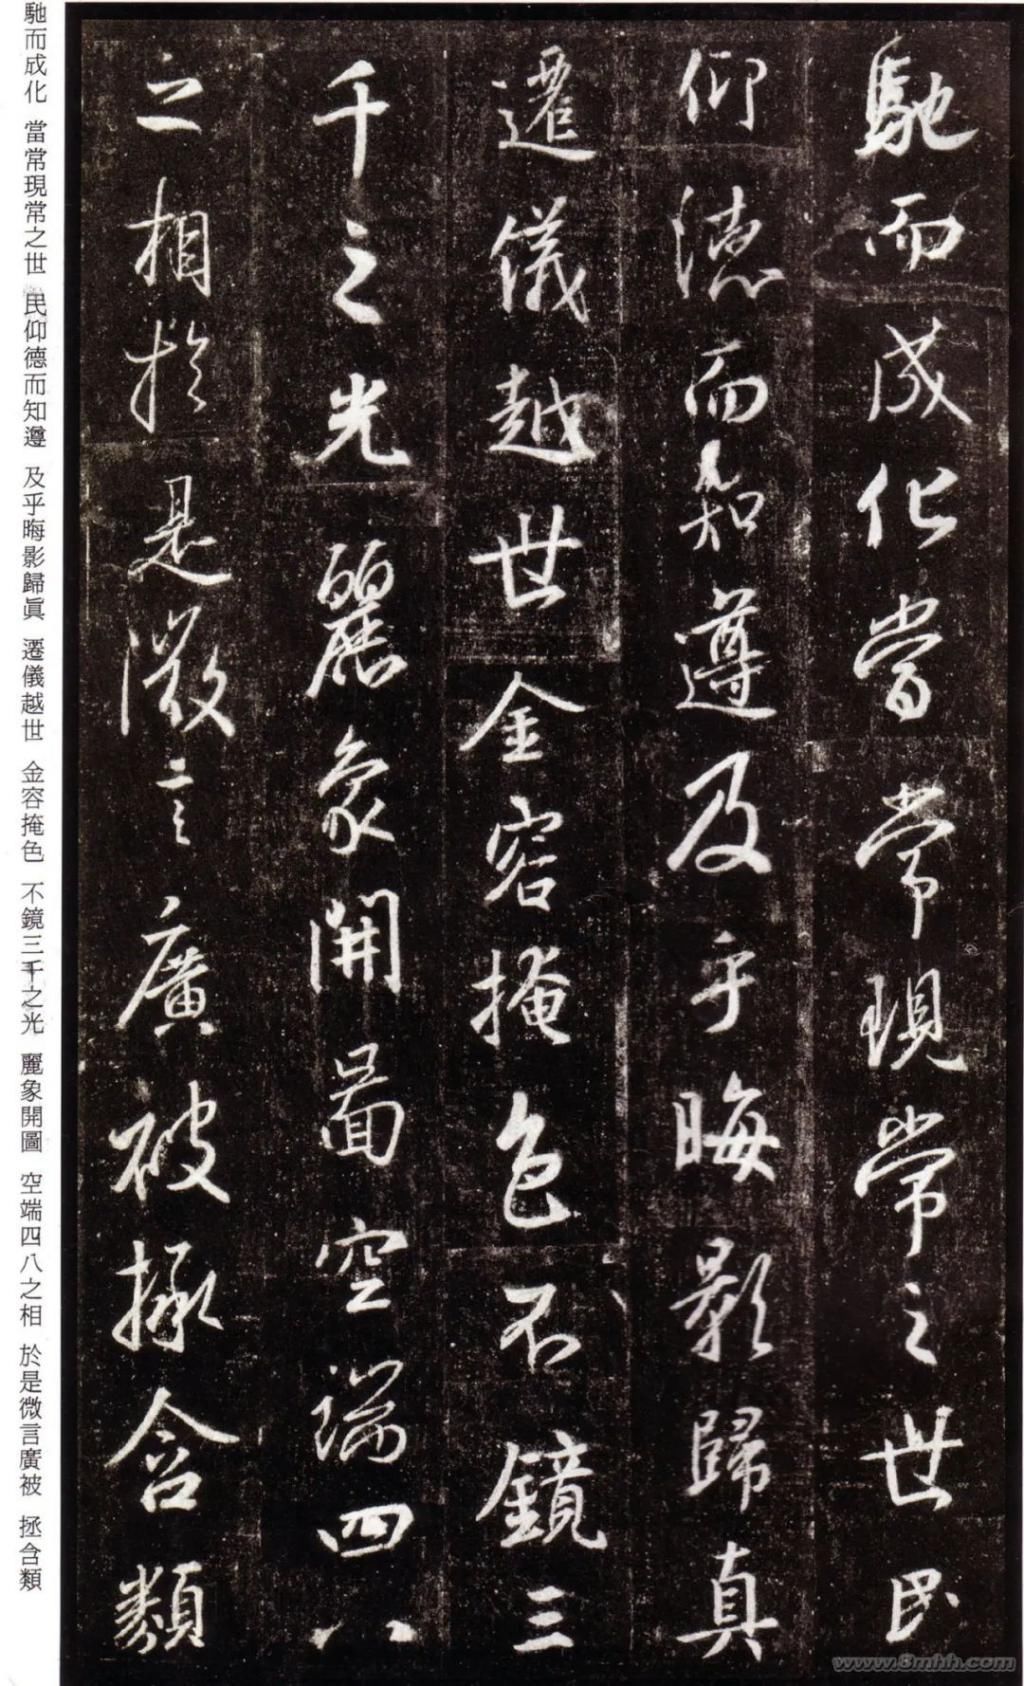 馳而成化當常現常之世民
仰德而知遵及乎晦影歸真
遷儀越世金容掩色不鏡三
千之光麗象開圖空端四八
之相於是微言廣被拯含類
馳而成化 當常現常之世 民仰德而知遵 及乎晦影歸眞 遷儀越世 金容掩色 不鏡三千之光 麗象開圖 空端四八之相 於是微言廣被 拯含類
www.8mhh.com